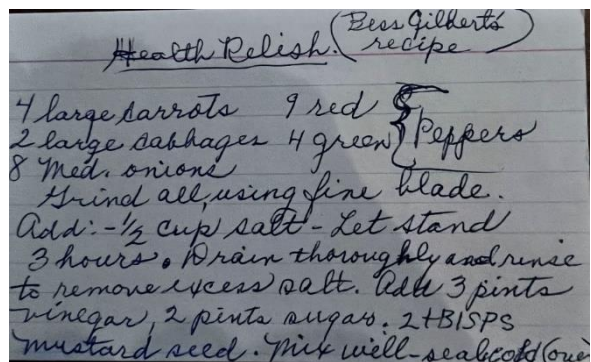 Health Relish. (Bess Gilbert's recipe)
4 large carrots 9 red
2 large cabbages 4 green } Peppers
8 Med. onions
Grind all, using fine blade.
Add:- 1/2 cup salt - Let stand
3 hours. Drain thoroughly and rinse
to remove excess salt. Add 3 pints
vinegar, 2 pints sugar. 2 TBlSPS
mustard seed. Mix well - seal cold (over